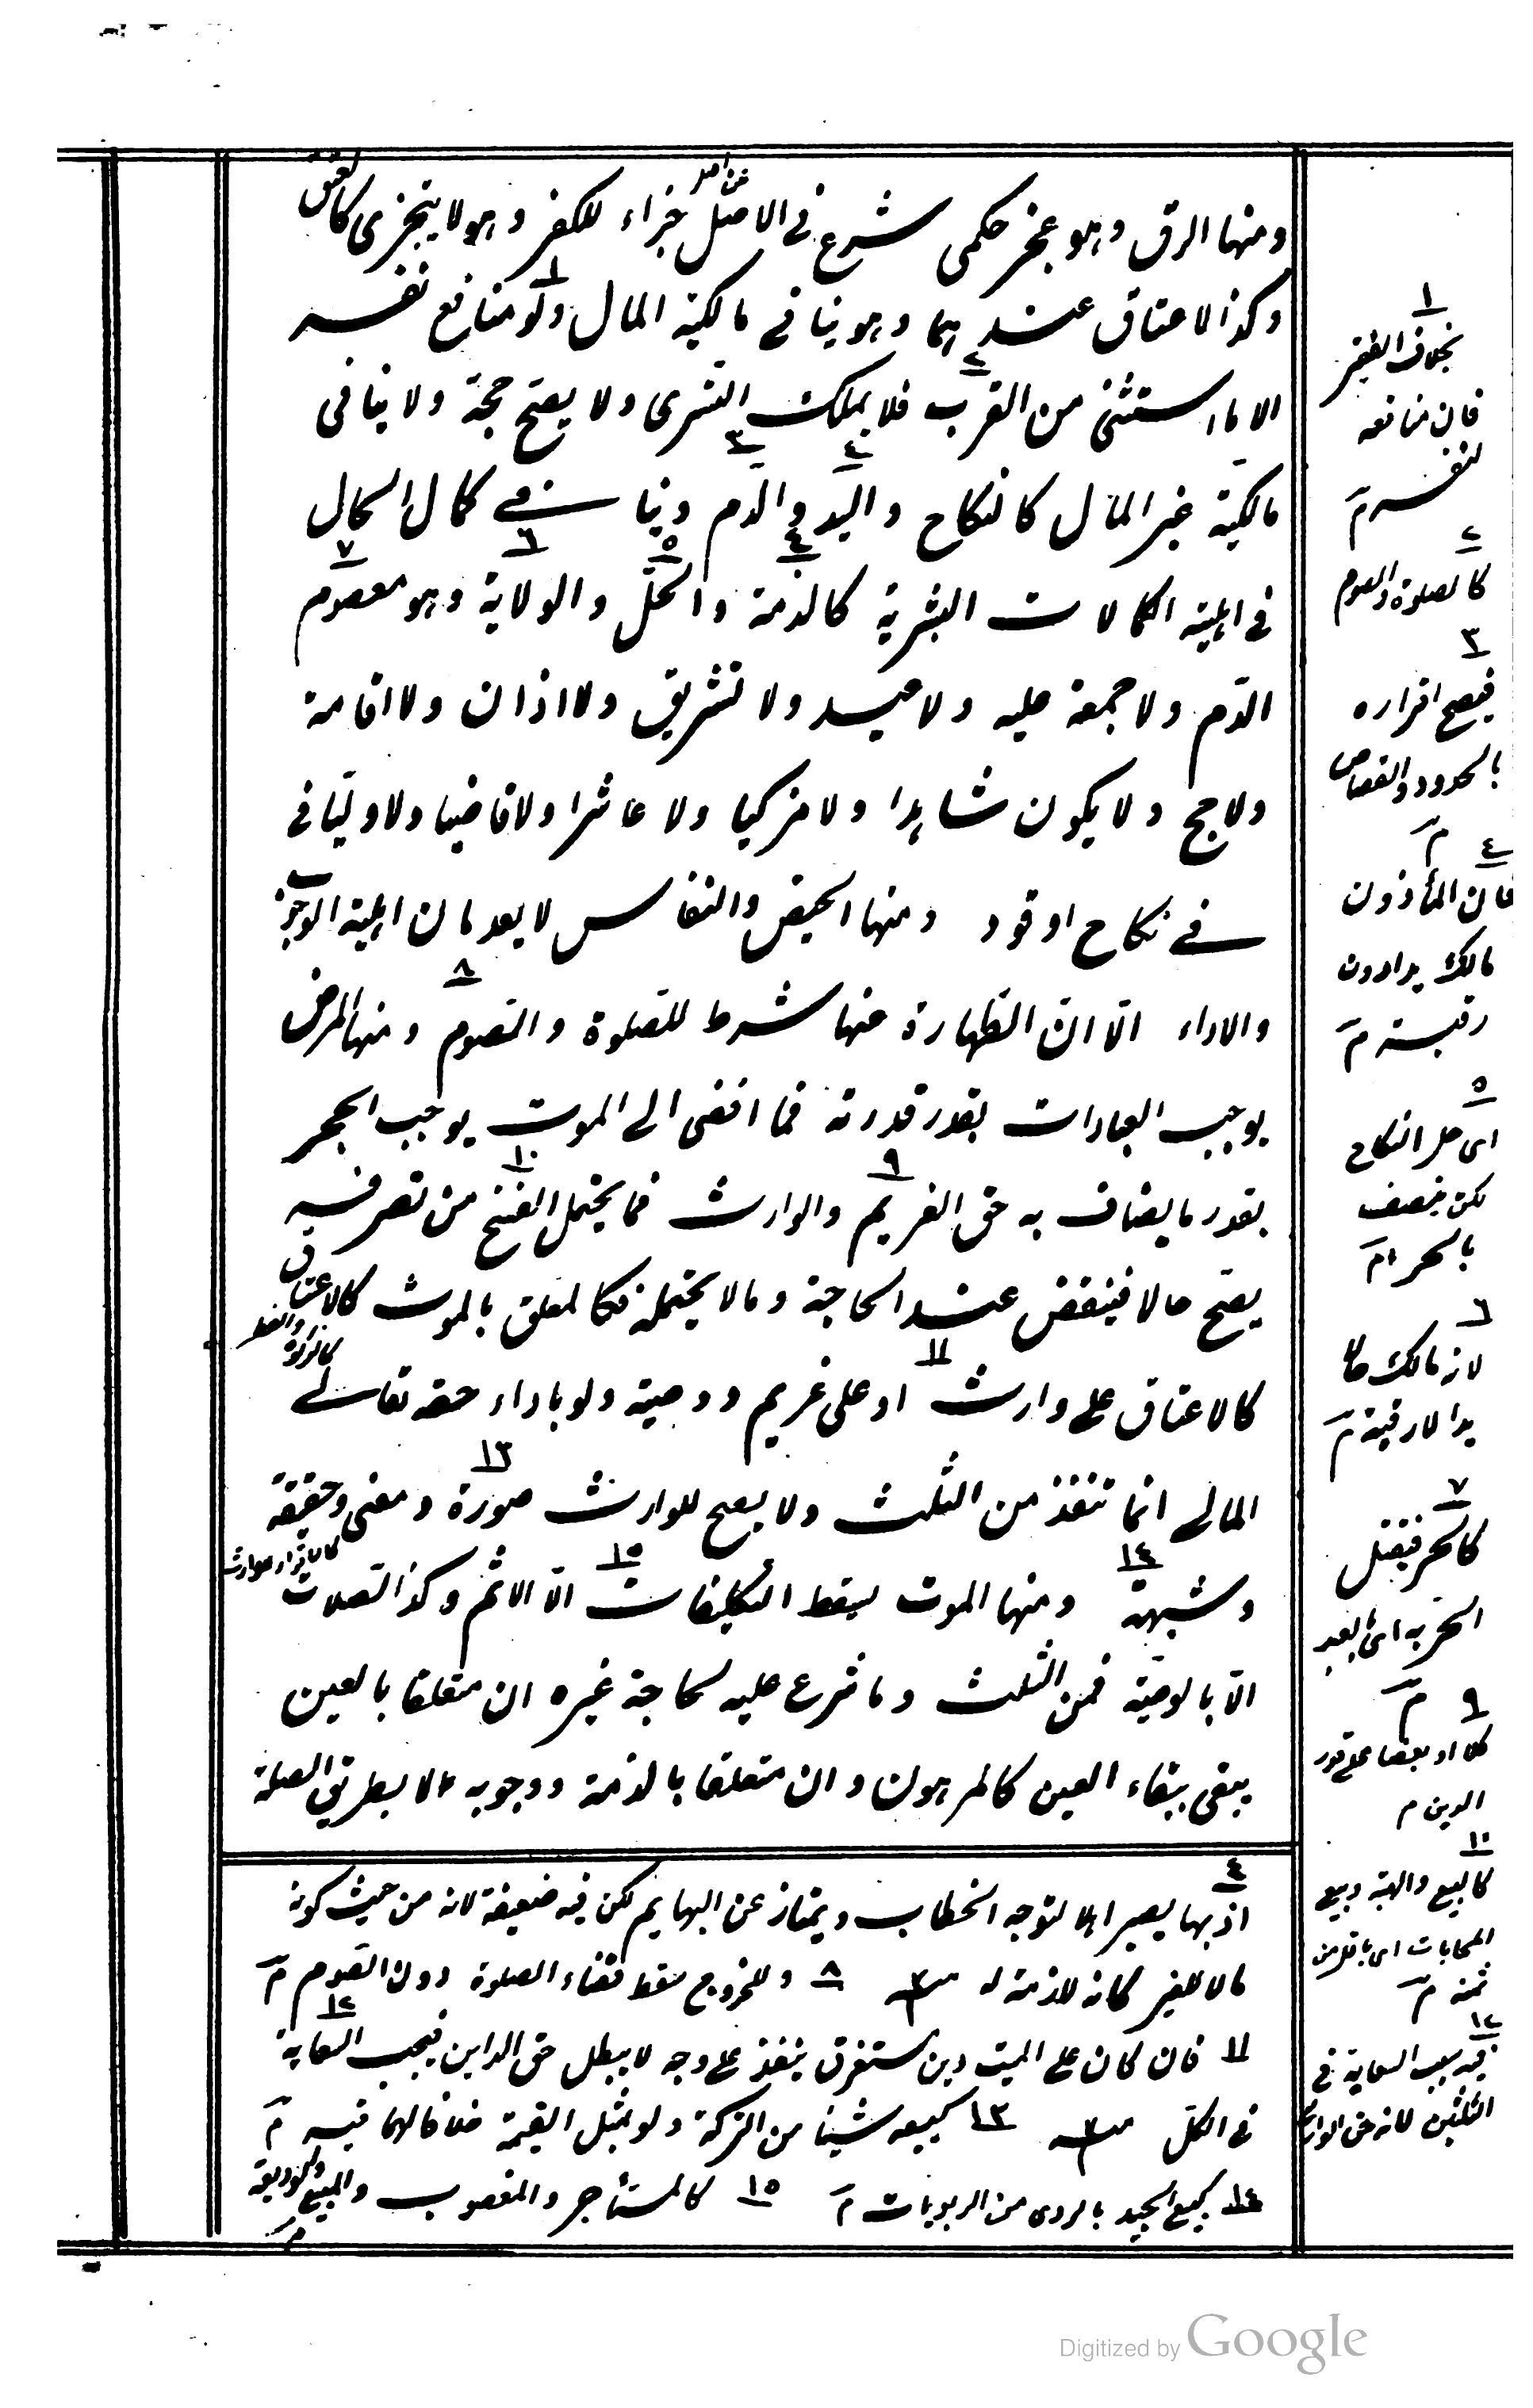 ومنها الرق وهو عجز حكمى شرع فى الاصل جزاء للكفر وهو لا يتجزى كالعتق
وكذا الاعتاق عندهما وهو ينافى مالكية المال ولو منافع نفسه
الا ما استثنى من القرب فلا يملك التسرى ولا يصح حجة ولا ينافى
مالكية غير المال كالنكاح واليد والدم وينافى كمال الحال
فى اهلية الكمالات البشرية كالذمة والحل والولاية وهو معصوم
الدم ولا جمعة عليه ولا عيد ولا تشريق ولا اذان ولا اقامة
ولا حج ولا يكون شاهدا ولا مزكيا ولا عاشرا ولا قاضيا ولا وليا فى
فى نكاح او قود ومنها الحيض والنفاس لا يعدمان اهلية الوجوب
والاداء الا ان الطهارة عنها شرط للصلوة والصوم ومنها المرض
يوجب العبادات بقدر قدرته فما افضى الى الموت يوجب الحجر
بقدر ما يضاف به حق الغريم والوارث فما يحتمل الفسخ من تصرفه
يصح حالا فينقض عند الحاجة وما لا يحتمله فكالمعلق بالموت كالاعتاق
كالاعتاق على وارث او على غريم ووصية ولو باداء حقه تعالى كالزكوة والفطر
المالى انما تنفذ من الثلث ولا يصح للوارث صورة ومعنى وحقيقة
وشبهة ومنها الموت ليقط التكليفات الا الاثم وكذا الصلات
الا بالوصية فمن الثلث وما شرع عليه لحاجة غيره ان متعلقا بالعين
يبقى ببقاء العين كالمرهون وان متعلقا بالذمة ووجوبه لا بطريق الصلة
٤ اذ بها يصير اهلا لتوجه الخطاب ويمتاز عن البهايم لكن فيه ضعيفة لانه من حيث كونه
مالا للغير كانه لا ذمة له ٨ وللخروج سقط قضاء الصلوة دون الصوم م
١١ فان كان على الميت دين مستغرق ينفذ على وجه لا يبطل حق الداين فيجب السعاية
فى الكل ١٣ كبيعه شيئا من التركة ولو بمثل القيمة خلافا لهما فيه م
١٤ كبيع الجيد بالردى من الربويات م ١٥ كالمستأجر والمغصوب والمبيع والوديعة م
١
بخلاف الفقير
فان منافعه
لنفسه م
٢
كالصلوة والصوم
٣
فيصح اقراره
بالحدود والقصاص
م
٤
فان المأذون
مالك يدا دون
رقبة م
٥
اى حل النكاح
لكن ينصف
بالحر م
٦
لانه مالك مالا
يدا لا رقبة م
٧
كالحر فيقتل
الحر به اى بالعبد
م
٩
كلا او بعضا على قدر
الدين م
١٠
كالبيع والهبة وبيع
المحابات اى باقل من
ثمنه م
١٢
فيه يجب السعاية فى
الثلثين لانه حق الوارث
Digitized by Google